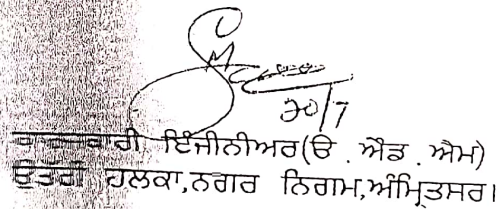 20/7
ਕਾਰਜਕਾਰੀ ਇੰਜੀਨੀਅਰ(ਓ . ਐਂਡ . ਐਮ)
ਉਤੱਰੀ ਹਲਕਾ,ਨਗਰ ਨਿਗਮ,ਅੰਮ੍ਰਿਤਸਰ।